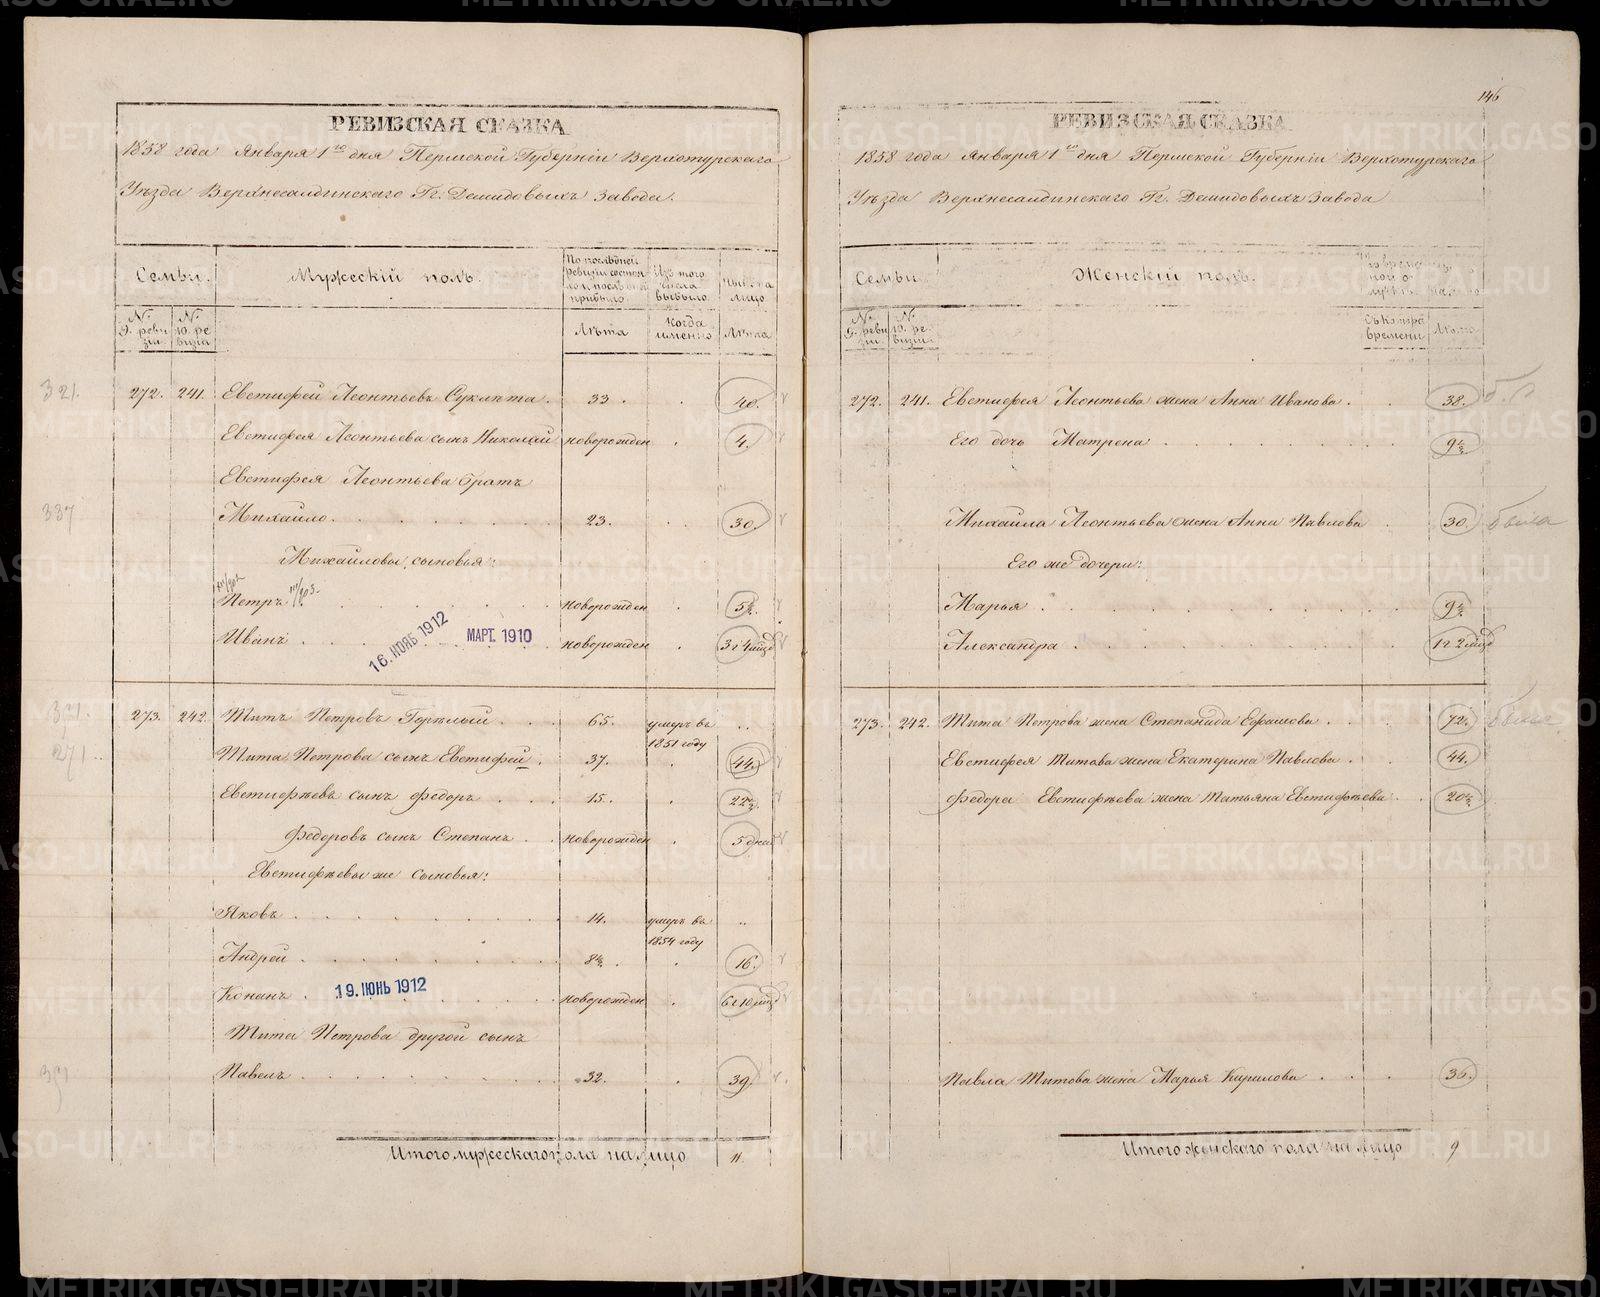 РЕВИЗСКАЯ СКАЗКА
1858 года Января 1го дня Пермской Губерніи Верхотурскаго
Уѣзда Верхнесалдинскаго Гг. Демидовыхъ Завода.
Семьи. Мужескій полъ.
По послѣдней ревизіи состояло и послѣ оной прибыло. Изъ того числа выбыло. Нынѣ на лицо
№ 9. ревизіи № 10. ревизіи Лѣта Когда именно Лѣта
321. 272. 241. Евстифей Леонтьевъ 33. 40.
Евстифея Леонтьева сынъ Николай новорожден 4.
Евстифея Леонтьева братъ
337 Михайло 23. 30.
Михайловы сыновья:
Петръ новорожден 5½.
Иванъ 16. НОЯБ 1912 МАРТ. 1910 новорожден 3 г 4 мѣсц
273. 242. Титъ Петровъ Горѣлый 65. умеръ въ
1851 году
271. Тита Петрова сынъ Евстифей 37. 44.
Евстифѣевъ сынъ Федоръ 15. 22½.
Федоровъ сынъ Степанъ новорожден 5 дней
Евстифѣевы же сыновья:
Яковъ 14. умеръ въ
1854 году
Андрей 8½. 16.
Кононъ 19. ІЮНЬ 1912 новорожден 6 г 10 мѣсц
Тита Петрова другой сынъ
Павелъ 32. 39.
Итого мужескаго пола на лицо 11.
146
РЕВИЗСКАЯ СКАЗКА
1858 года Января 1го дня Пермской Губерніи Верхотурскаго
Уѣзда Верхнесалдинскаго Гг. Демидовыхъ Завода
Семьи. Женскій полъ.
№ 9. ревизіи № 10. ревизіи Съ котораго времени Лѣта
272. 241. Евстифея Леонтьева жена Анна Иванова. 38.
Его дочь Матрена 9½
Михайла Леонтьева жена Анна Павлова 30.
Его же дочери:
Марья 9½.
Александра 1 г 2 мѣсц
273. 242. Тита Петрова жена Степанида Ефимова 72.
Евстифея Титова жена Екатерина Павлова 44.
Федора Евстифѣева жена Татьяна Евстифѣева 20½
Павла Титова жена Марья Кирилова 36.
Итого женскаго пола на лицо 9
METRIKI.GASO-URAL.RU